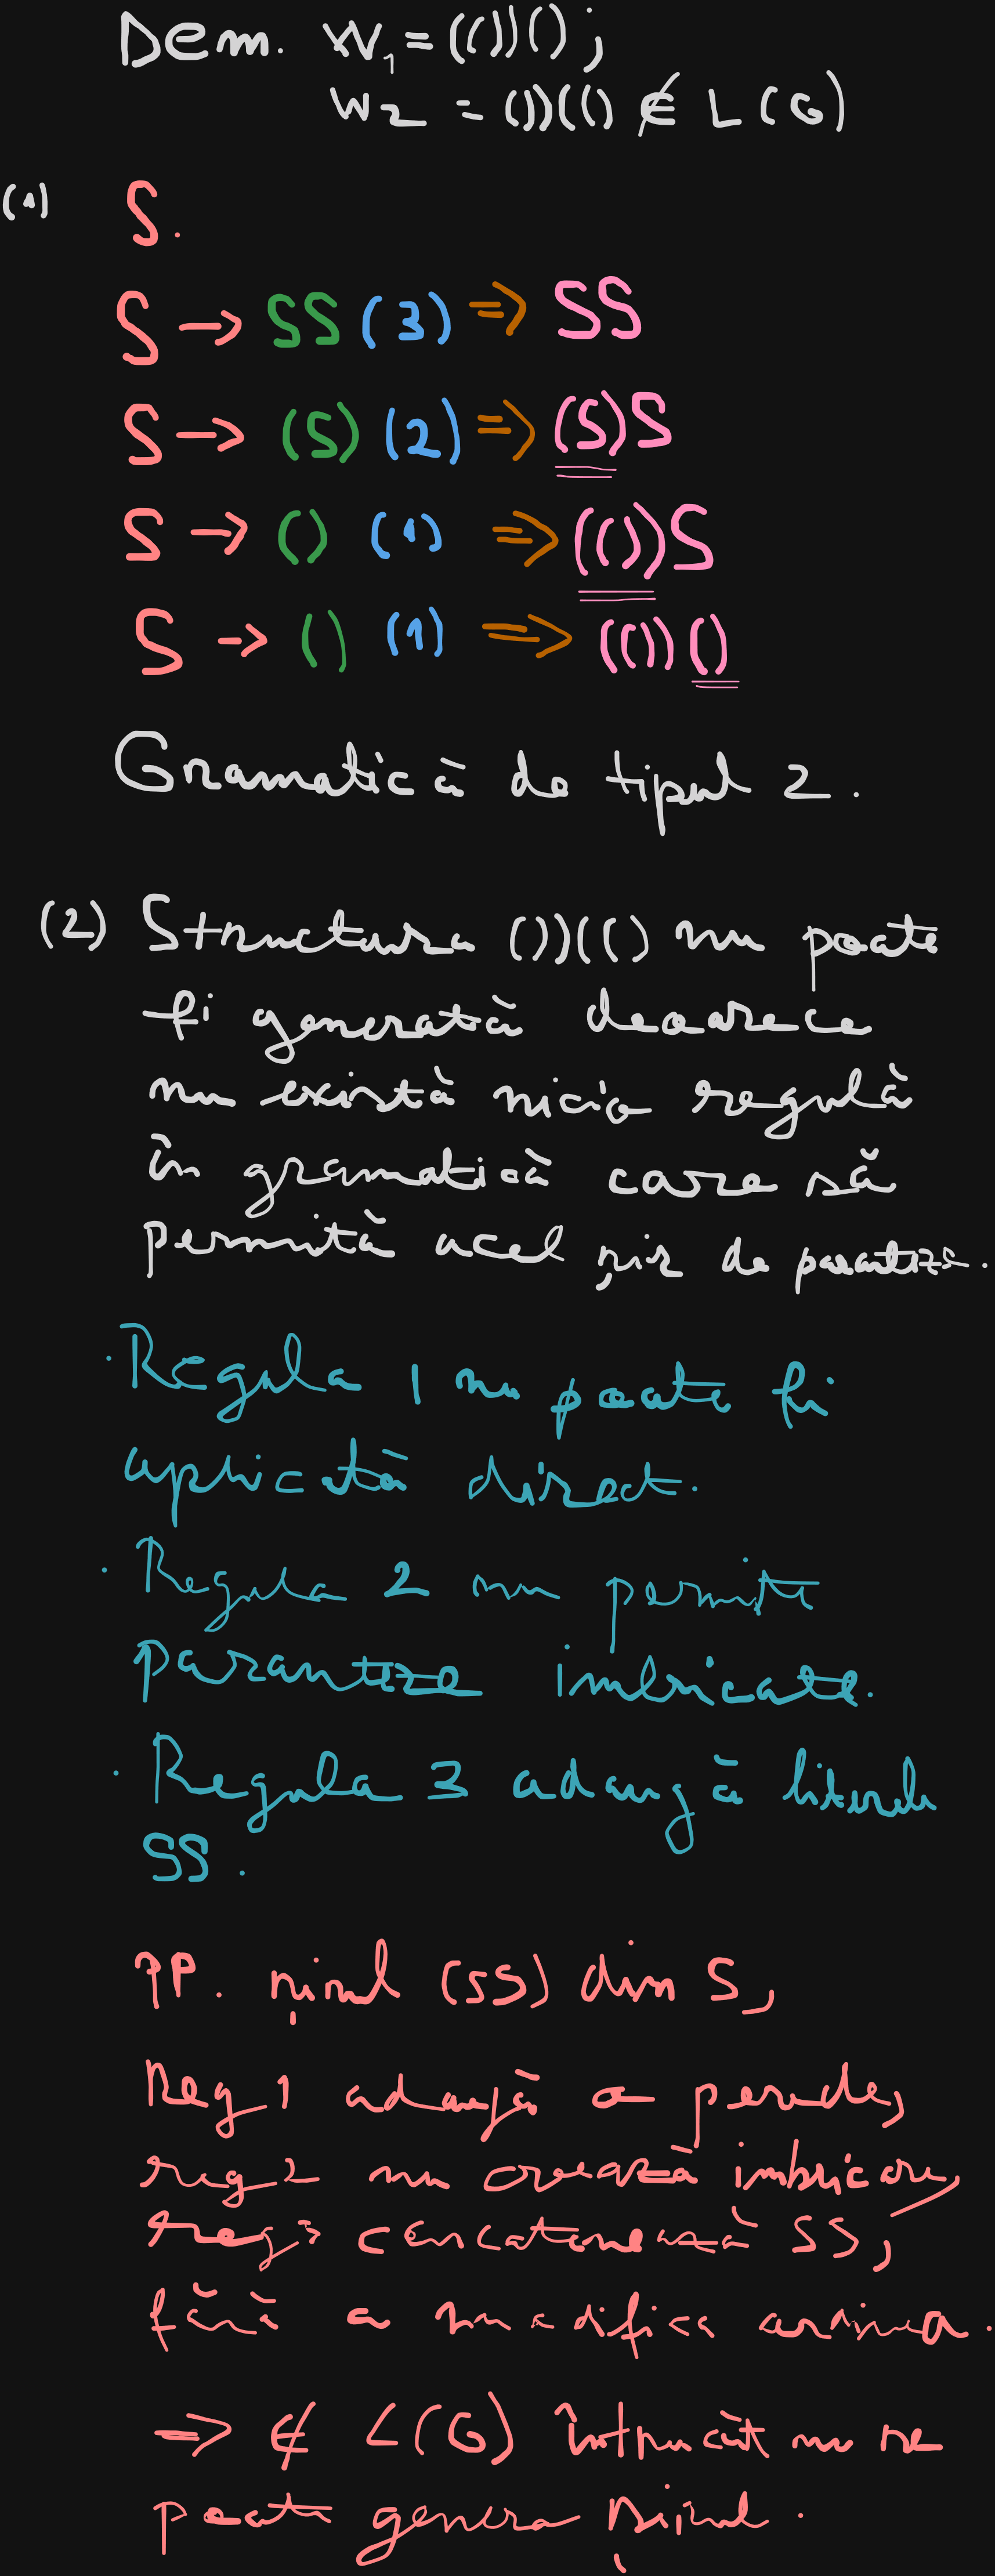 Dem. W₁ = (())();
W2 = ())(() ∉ L(G)
(1) S.
S → SS (3) ⇒ SS
S → (S) (2) ⇒ (S)S
S → () (1) ⇒ (())S
S → () (1) ⇒ (())()
Gramatică de tipul 2.
(2) Structura ())(() nu poate
fi generată deoarece
nu există nicio regulă
în gramatică care să
permită acel șir de paranteze.
· Regula 1 nu poate fi
aplicată direct.
· Regula 2 nu permite
paranteze imbricate.
· Regula 3 adaugă literele
SS.
PP. șirul (SS) din S,
Reg 1 adaugă o pereche,
reg 2 nu creează imbricare,
reg 3 concatenează SS,
fără a modifica ordinea.
⇒ ∉ L(G) întrucât nu se
poate genera șirul.